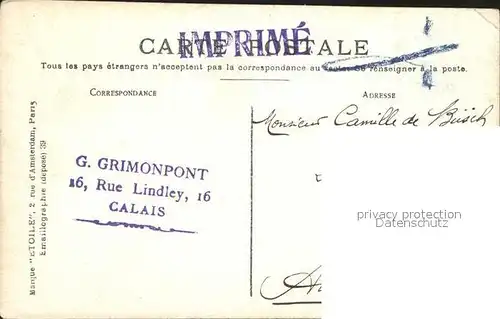 IMPRIMÉ
CARTE POSTALE
Tous les pays étrangers n'acceptent pas la correspondance au recto. Se renseigner à la poste.
CORRESPONDANCE
ADRESSE
Monsieur Camille de Büsch
G. GRIMONPONT
16, Rue Lindley, 16
CALAIS
privacy protection
Datenschutz
Marque "ETOILE", 2 rue d'Amsterdam, Paris
Emaillographie (déposé) 39